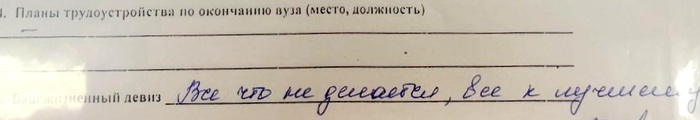 1. Планы трудоустройства по окончанию вуза (место, должность)
—
Ваш жизненный девиз Все что не делается, все к лучшему